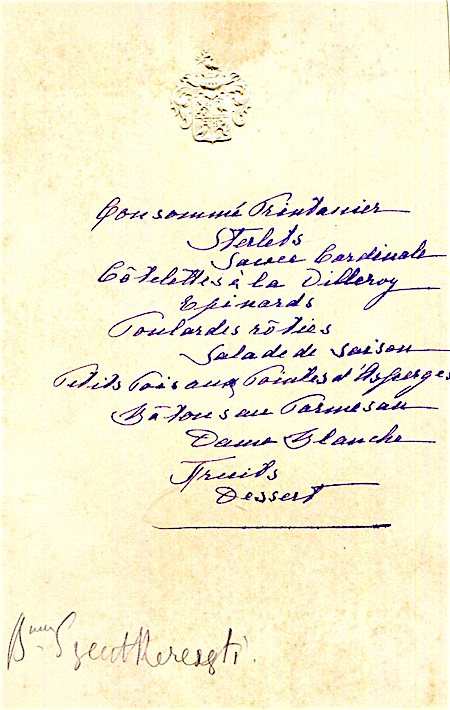 Consommé Printanier
Sterlets
Sauce Cardinale
Côtelettes à la Villeroy
Epinards
Poulardes rôties
Salade de saison
Petits Pois aux Pointes d'Asperges
Bâtons au Parmesan
Dame Blanche
Fruits
Dessert
Bnne Szentkereszti.